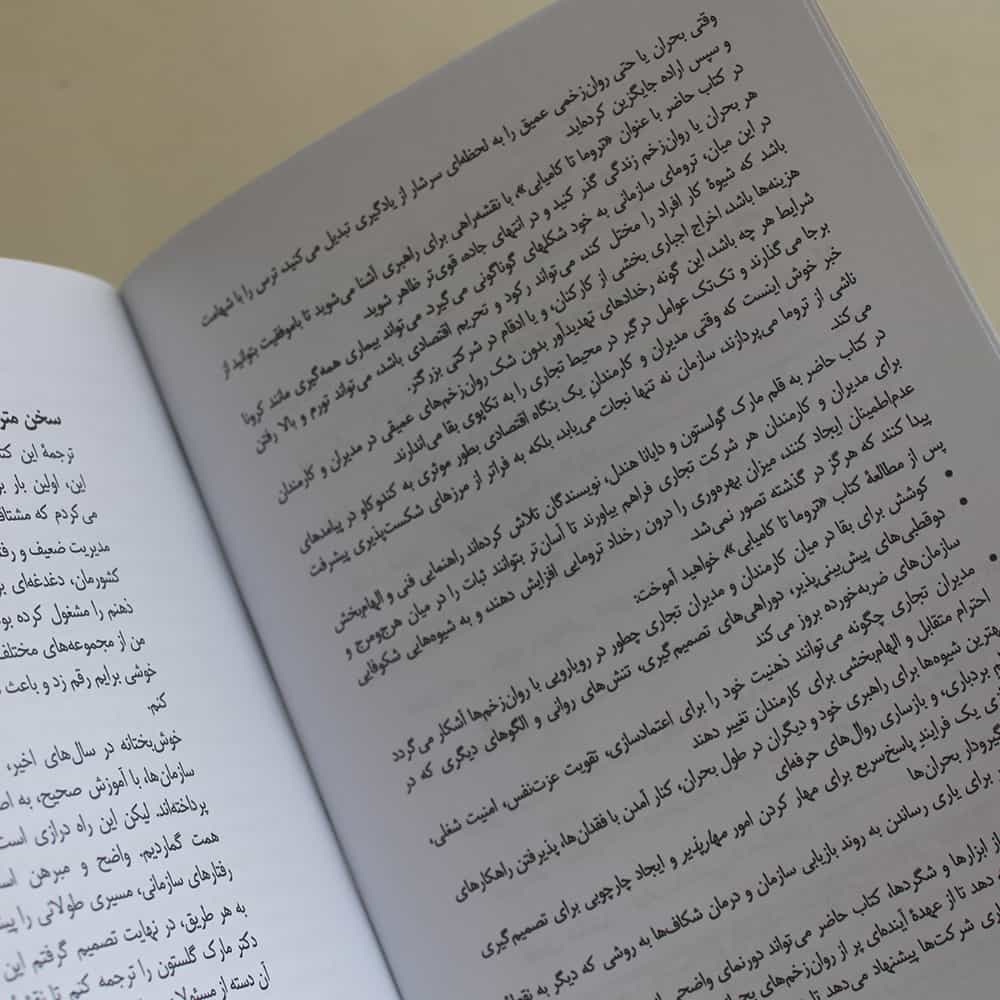 وقتی بحران یا حتی روان‌زخمی عمیق را به لحظه‌ای سرشار از یادگیری تبدیل می‌کنید، ترس را با شهامت
و سپس اراده جایگزین کرده‌اید.
در کتاب حاضر با عنوان «تروما تا کامیابی»، با نقشه‌راهی برای راهبری آشنا می‌شوید تا باموفقیت بتوانید از
هر بحران یا روان‌زخم زندگی گذر کنید و در انتهای جاده، قوی‌تر ظاهر شوید.
در این میان، ترومای سازمانی به خود شکلهای گوناگونی می‌گیرد. می‌تواند بیماری همه‌گیری مانند کرونا
باشد که شیوهٔ کار افراد را مختل کند، می‌تواند رکود و تحریم اقتصادی باشد، می‌تواند تورم و بالا رفتن
هزینه‌ها باشد، اخراج اجباری بخشی از کارکنان، و یا ادغام در شرکتی بزرگتر.
شرایط هر چه باشد، این گونه رخدادهای تهدیدآور بدون شک روان‌زخم‌های عمیقی در مدیران و کارمندان
برجا می‌گذارند و تک‌تک عوامل درگیر در محیط تجاری را به تکاپوی بقا می‌اندازند.
خبر خوش اینست که وقتی مدیران و کارمندانِ یک بنگاه اقتصادی بطور موثری به کندوکاو در پیامدهای
ناشی از تروما می‌پردازند، سازمان نه تنها نجات می‌یابد، بلکه به فراتر از مرزهای شکست‌پذیری پیشرفت
می کند.
در کتاب حاضر به قلم مارک گولستون و دایانا هندل، نویسندگان تلاش کرده‌اند راهنمایی فنی و الهام‌بخش
برای مدیران و کارمندان هر شرکت تجاری فراهم بیاورند تا آسان‌تر بتوانند ثبات را در میان هرج‌ومرج و
عدم‌اطمینان ایجاد کنند، میزان بهره‌وری را درون رخداد ترومایی افزایش دهند، و به شیوه‌هایی شکوفایی
پیدا کنند که هرگز در گذشته تصور نمی‌شد.
پس از مطالعهٔ کتاب «تروما تا کامیابی»، خواهید آموخت:
• کوشش برای بقا در میان کارمندان و مدیران تجاری چطور در رویارویی با روان‌زخم‌ها آشکار می‌گردد
• دوقطبی‌های پیش‌بینی‌پذیر، دوراهی‌های تصمیم‌گیری، تنش‌های روانی و الگوهای دیگری که در
سازمان‌های ضربه‌خورده بروز می کند
• مدیران تجاری چگونه می‌توانند ذهنیت خود را برای اعتمادسازی، تقویت عزت‌نفس، امنیت شغلی،
احترام متقابل و الهام‌بخشی برای کارمندان تغییر دهند
بهترین شیوه‌ها برای راهبری خود و دیگران در طول بحران، کنار آمدن با فقدان‌ها، پذیرفتن راهکارهای
بردباری، و بازسازی روال‌های حرفه‌ای
یک فرایندِ پاسخ‌سریع برای مهار کردن امور مهارپذیر و ایجاد چارچوبی برای تصمیم‌گیری
بحران‌ها
برای یاری رساندن به روند بازیابی سازمان و درمان شکاف‌ها به روشی که دیگر به
از ابزارها و شگردها، کتاب حاضر می‌تواند دورنمای واضحی
دهد تا از عهدهٔ آینده‌ای پر از روان‌زخم‌های
شرکت‌ها پیشنهاد می‌دهد
سخن
ترجمهٔ این
این، اولین بار
می کردم که
مدیریت ضعیف و
کشورمان، دغدغه‌ای
ذهنم را مشغول کرده
من از مجموعه‌های مختلف
خوشی برایم رقم زد و باعث
کنم.
خوش‌بختانه در سال‌های اخیر،
سازمان‌ها، با آموزش صحیح، به
پرداخته‌اند. لیکن این راه درازی است
همت گماردیم. واضح و مبرهن
رفتارهای سازمانی، مسیری طولانی را
به هر طریق، در نهایت تصمیم گرفتم این
دکتر مارک گلستون را ترجمه کنم تا
آن دسته از